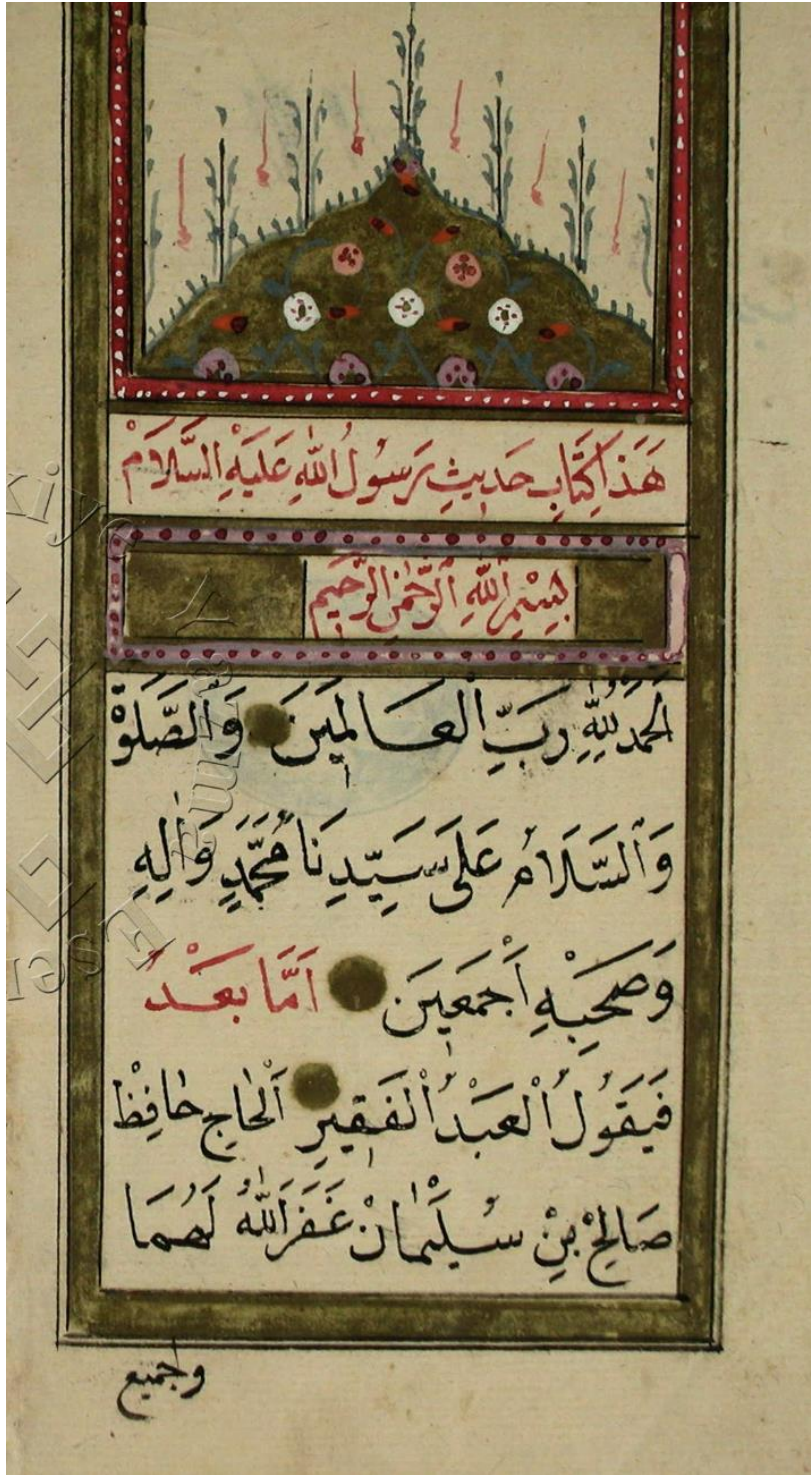 هَذَا كِتَابِ حَدِيثِ رَسُولُ اللّٰهِ عَلَيْهِ السَّلَامْ
بِسْمِ اللّٰهِ الرَّحْمٰنِ الرَّحِيمِ
اَلْحَمْدُ لِلّٰهِ رَبِّ الْعَالَمِينَ وَالصَّلٰوةُ
وَالسَّلَامُ عَلَى سَيِّدِنَا مُحَمَّدٍ وَاٰلِهِ
وَصَحْبِهِ اَجْمَعِينَ اَمَّا بَعْدُ
فَيَقُولُ الْعَبْدُ الْفَقِيرِ اَلْحَاجِ حَافِظْ
صَالِحْ بِنْ سُلَيْمَانْ غَفَرَ اللّٰهُ لَهُمَا
وجميع
Yazma
Eser